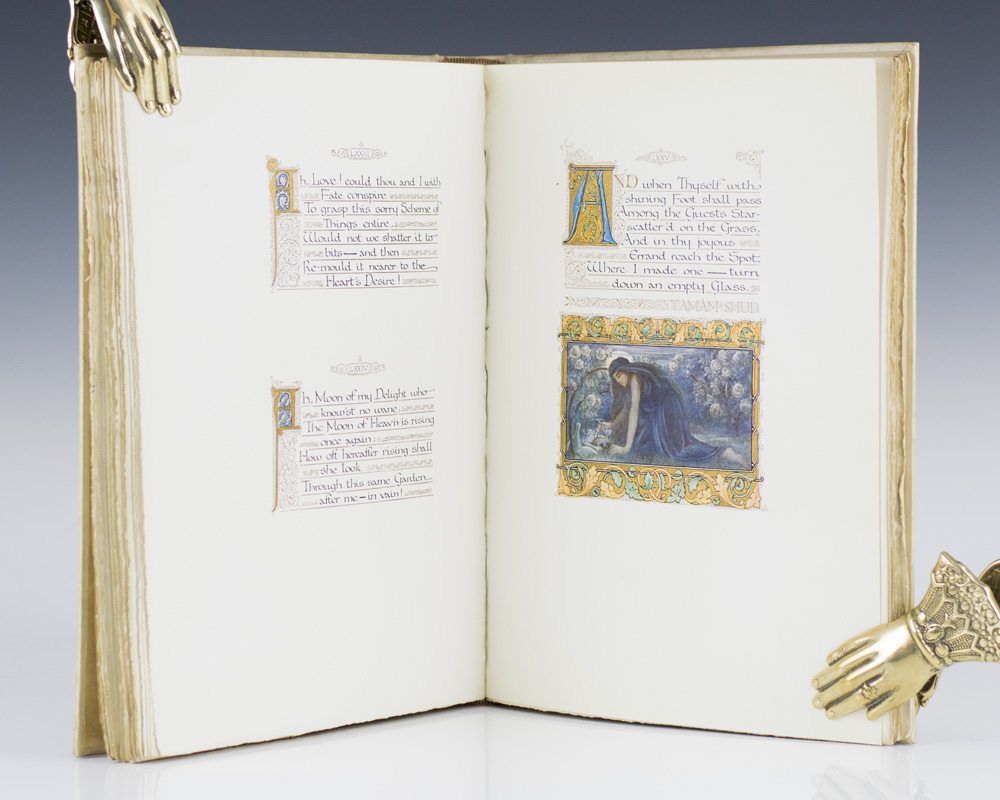 LXXIII
Ah, Love! could thou and I with
Fate conspire
To grasp this sorry Scheme of
Things entire,
Would not we shatter it to
bits — and then
Re-mould it nearer to the
Heart's Desire!
LXXIV
Ah, Moon of my Delight who
know'st no wane
The Moon of Heav'n is rising
once again:
How oft hereafter rising shall
she look
Through this same Garden
after me — in vain!
LXXV
AND when Thyself with
shining Foot shall pass
Among the Guests Star-
scatter'd on the Grass,
And in thy joyous
Errand reach the Spot
Where I made one — turn
down an empty Glass.
TAMAM SHUD